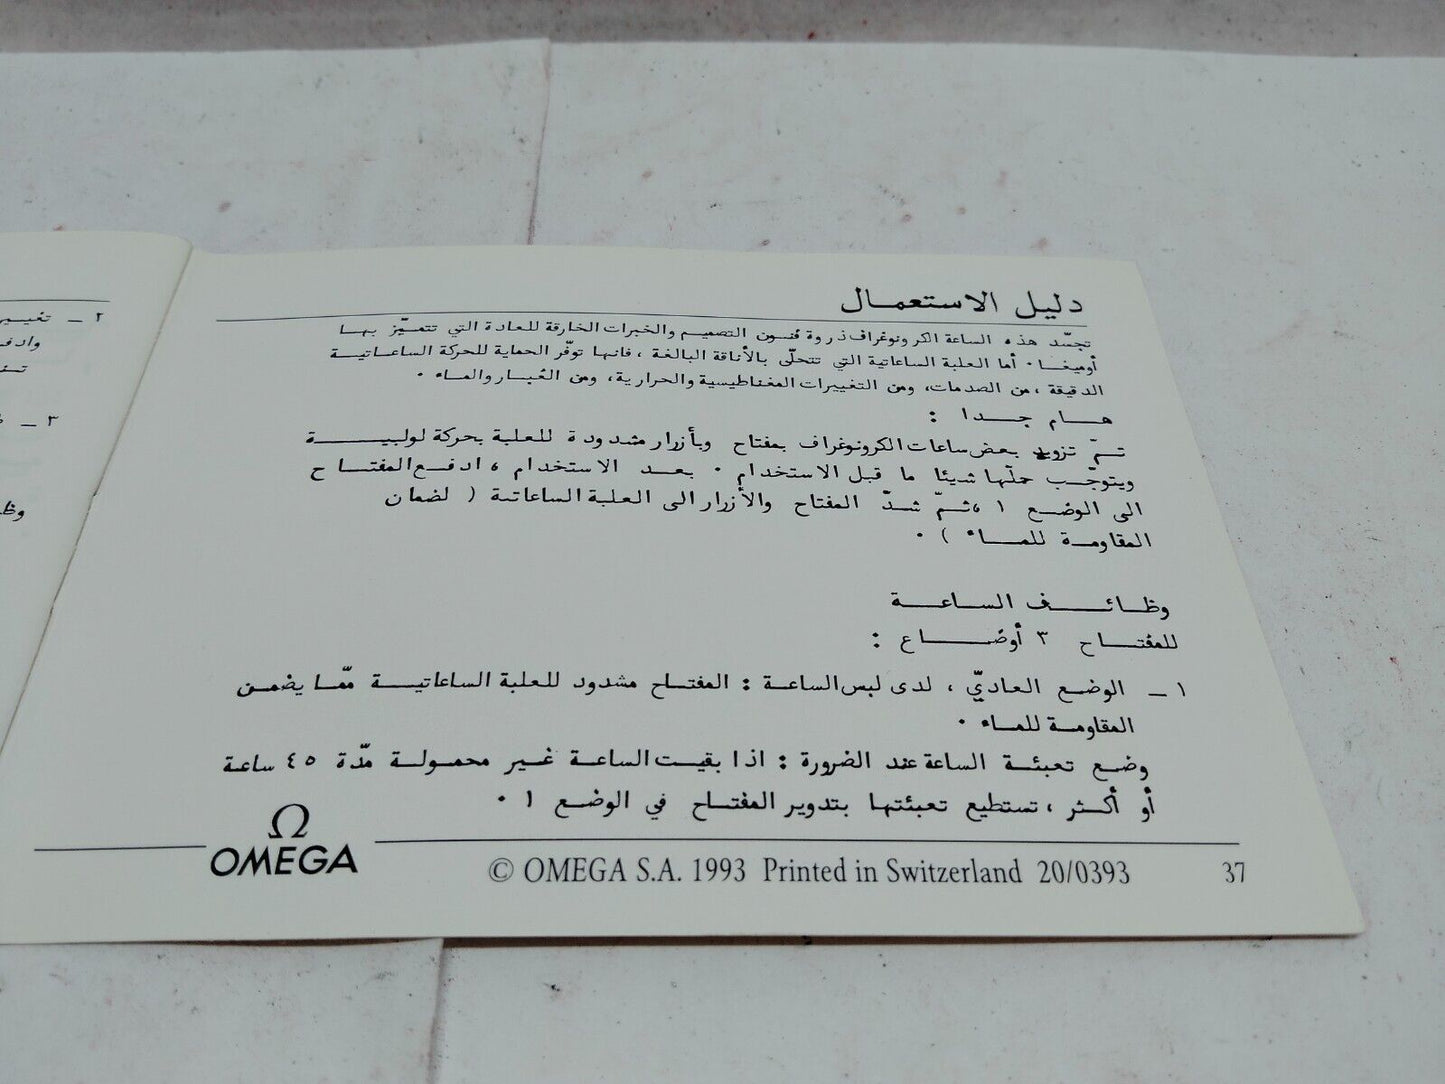 دليل الاستعمال
تجسّد هذه الساعة الكرونوغراف ذروة فنون التصميم والخبرات الخارقة للعادة التي تتميّز بها
أوميغا . أما العلبة الساعاتية التي تتحلّى بالأناقة البالغة ، فانها توفّر الحماية للحركة الساعاتية
الدقيقة ، من الصدمات، ومن التغييرات المغناطيسية والحرارية، ومن الغبار والماء .
هام جدا :
تمّ تزويد بعض ساعات الكرونوغراف بمفتاح وبأزرار مشدودة للعلبة بحركة لولبية
ويتوجّب حلّها شيئا ما قبل الاستخدام . بعد الاستخدام ، ادفع المفتاح
الى الوضع ١ ، ثمّ شدّ المفتاح والأزرار الى العلبة الساعاتية ( لضمان
المقاومة للماء ) .
وظائف الساعة
للمفتاح ٣ أوضاع :
١ – الوضع العاديّ ، لدى لبس الساعة : المفتاح مشدود للعلبة الساعاتية ممّا يضمن
المقاومة للماء .
وضع تعبئة الساعة عند الضرورة : اذا بقيت الساعة غير محمولة مدّة ٤٥ ساعة
أو أكثر ، تستطيع تعبئتها بتدوير المفتاح في الوضع ١ .
Ω
OMEGA
© OMEGA S.A. 1993 Printed in Switzerland 20/0393
37
٢ –
٣ –